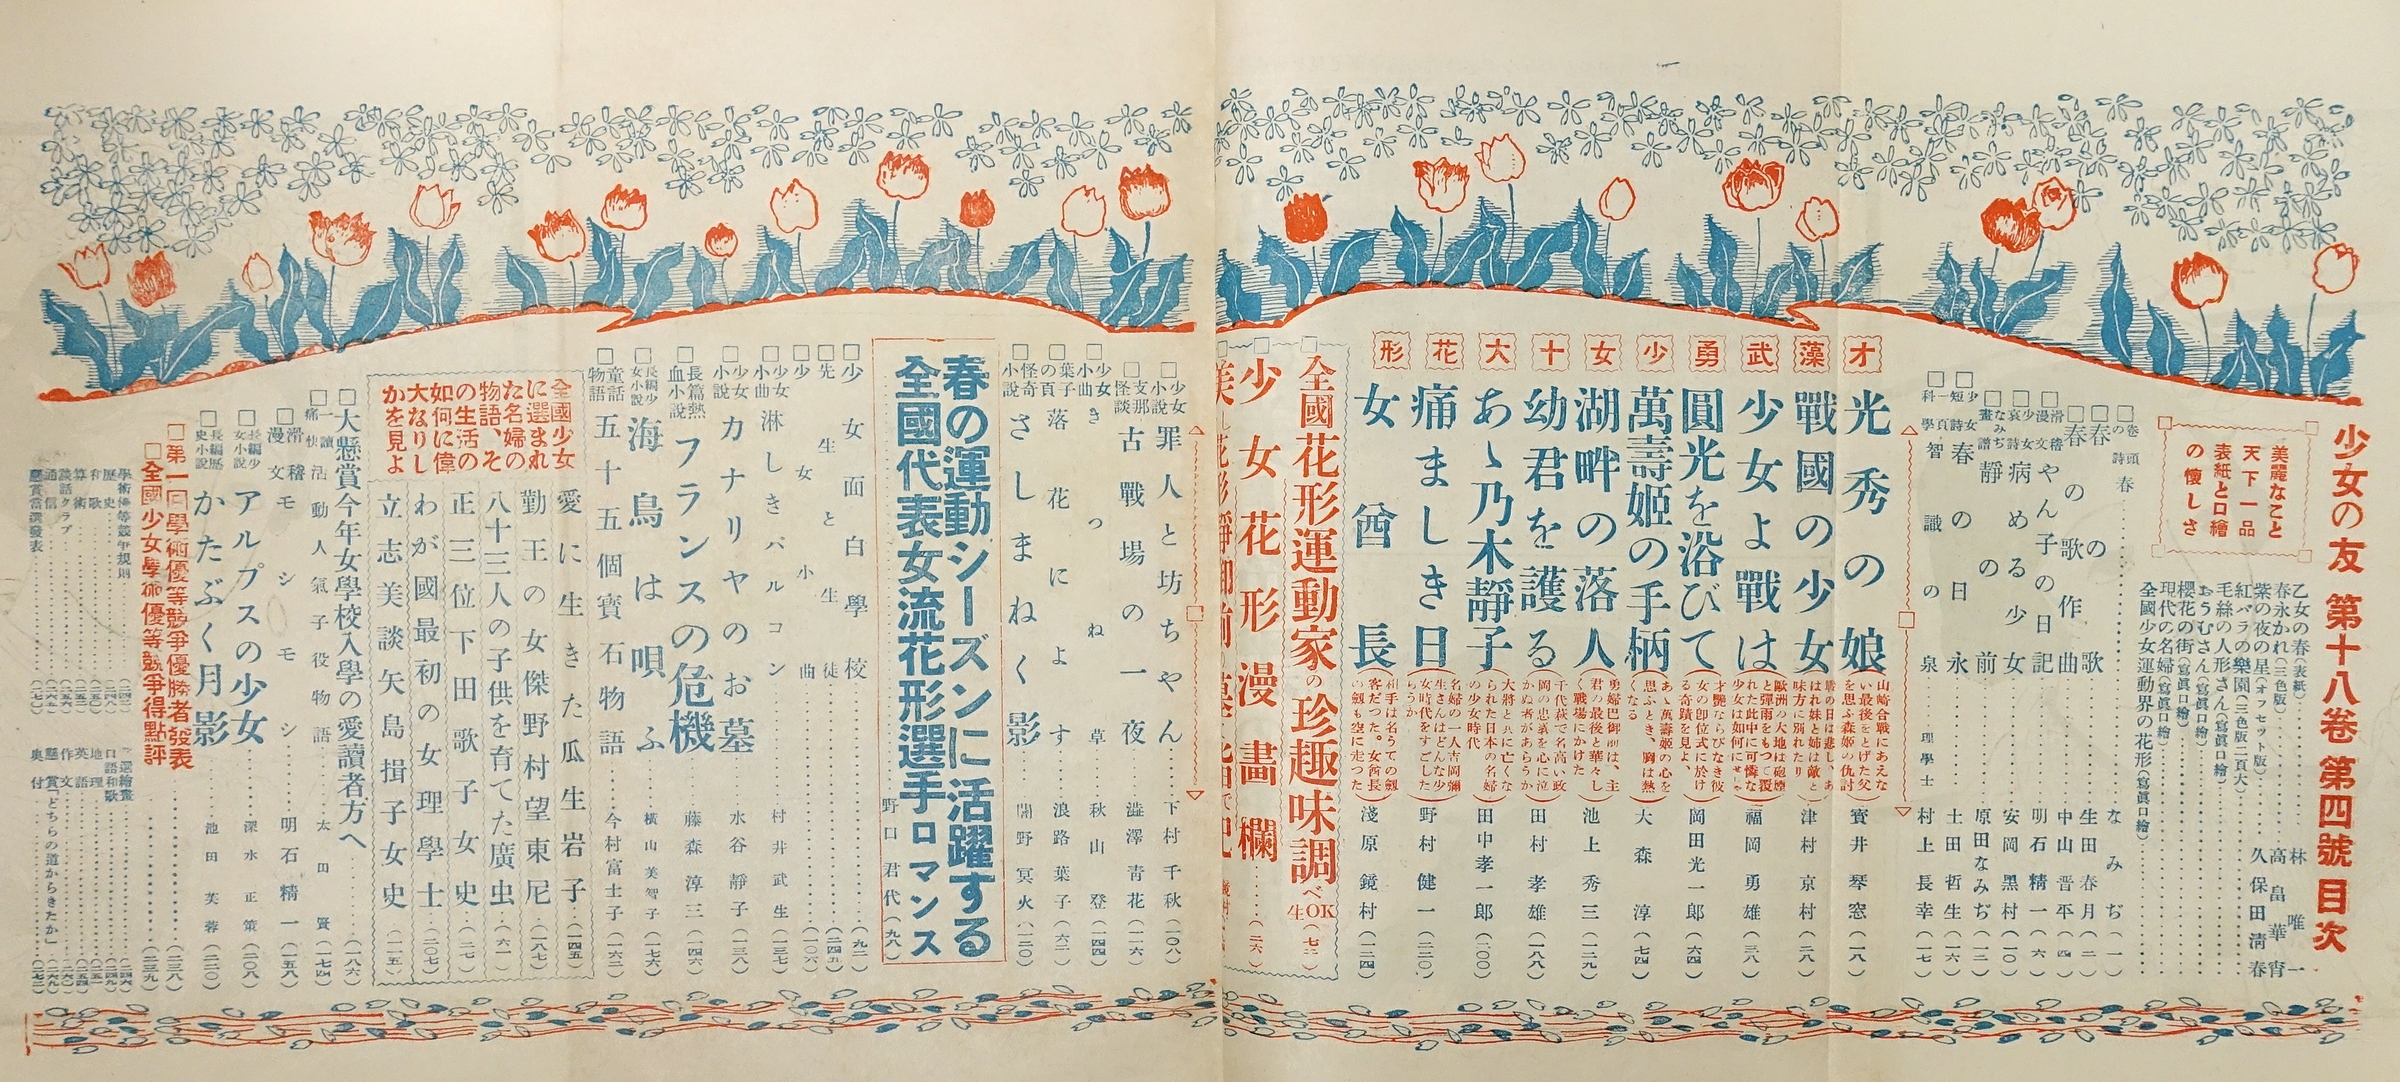 少女の友 第十八卷 第四號 目次
美麗なこと
天下一品
表紙と口繪
の懷しさ
乙女の春(表紙)
林唯一
春永かれ(三色版)
高畠華宵
紫の夜の星(オフセット版)
久保田淸春
紅バラの樂園(三色版二頁大)
毛絲の人形さん(寫眞口繪)
おうむさん(寫眞口繪)
櫻花の街(寫眞口繪)
現代の名婦(寫眞口繪)
全國少女運動界の花形(寫眞口繪)
卷頭の詩 春 なみぢ(一)
春の歌 生田春月(二)
春の歌作曲 中山晋平(四)
滑稽漫文 やん子の日記 明石精一(六)
少女哀詩 病める少女 安岡黒村(一〇)
なみぢ畫譜 靜の前 原田なみぢ(一二)
少女短詩 春の日永 土田哲生(一六)
科學一頁 智識の泉 理學士 村上長幸(一七)
才藻武勇少女十大花形
光秀の娘
山崎合戰にあえない最後をとげた父を思ふ森姬の仇討
寶井琴窓(一八)
戰國の少女
津村京村(二八)
少女よ戰は
歐洲の大地は砲煙と彈雨をもつて覆れた此中に可憐な少女は如何にせし
福岡勇雄(三八)
圓光を浴びて
才艷ならびなき彼女の卽位式に於ける奇蹟を見よ、
岡田光一郎(六四)
萬壽姬の手柄
あゝ萬壽姬の心を思ふとき、胸は熱くなる
大森淳(七四)
湖畔の落人
勇婦巴御前は、主君の最後と華々しく戰場にかけた
池上秀三(一二九)
幼君を護る
千代萩で名高い政岡の忠義を心に泣かぬ者があらうか
田村孝雄(一八八)
あゝ乃木靜子
大將と共に亡くなられた日本の名婦の少女時代
田中孝一郎(二〇〇)
痛ましき日
名婦の一人吉岡彌生さんはどんな少女時代をすごしたらうか
野村健一(二二〇)
女酋長
相手は名うての劍客だつた。女酋長の劍も空に走つた
淺原鏡村(二二四)
全國花形運動家の珍趣味調べ OK生(七二)
少女花形漫畫欄(二六)
少女小說 罪人と坊ちやん 下村千秋(一〇八)
支那怪談 古戰場の一夜 澁澤靑花(一一六)
少女小曲 きつね草 秋山登(一四四)
葉子の頁 落花によす 浪路葉子(六二)
怪奇小說 さしまねく影 闇野冥火(一二〇)
春の運動シーズンに活躍する
全國代表女流花形選手ロマンス
野口君代(九八)
少女面白學校(九二)
先生と生徒(二四五)
少女小曲(一〇六)
少女小曲 淋しきバルコン 村井武生(一三七)
少女小說 カナリヤのお墓 水谷靜子(一三八)
長篇熱血小說 フランスの危機 藤森淳三(一四六)
長編少女小說 海鳥は唄ふ 横山美智子(一七六)
童話物語 五十五個寶石物語 今村富士子(一六二)
全國少女に選まれた名婦の物語、その生活の如何に偉大なりしかを見よ
愛に生きた瓜生岩子(一四五)
勤王の女傑野村望東尼(一八七)
八十三人の子供を育てた廣虫(六一)
正三位下田歌子女史(二七)
わが國最初の女理學士(二〇七)
立志美談矢島揖子女史(一一五)
大懸賞今年女學校入學の愛讀者方へ(一八六)
一讀痛快 活動人氣子役物語 太田賢(一七四)
滑稽漫文 モシモシ 明石精一(一五八)
長編少女小說 アルプスの少女 深水正策(二〇八)
長編歷史小說 かたぶく月影 池田芙蓉(二三〇)
第一回學術優等競爭優勝者發表(二三八)
全國少女學術優等競爭得點評(二三九)
學術優等競爭規則
歷史
和歌
算術
談話クラブ
通信
懸賞當選發表
選繪畫
口語和歌
地理
英語
作文
懸賞「どちらの道からきたか」
奥付